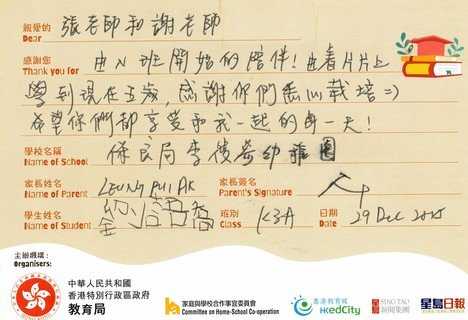 親愛的
Dear 張老師和謝老師
感謝您
Thank you for 由N班開始的陪伴！由看片片上
學到現在五歲，感謝你們悉心栽培=)
希望你們都享受和我一起的每一天！
學校名稱
Name of School 保良局李俊駒幼稚園
家長姓名
Name of Parent LEUNG PUI
家長簽名
Parent's Signature
學生姓名
Name of Student
班別
Class K3A
日期
Date 29 Dec
主辦機構：
Organisers:
中華人民共和國
香港特別行政區政府
教育局
家庭與學校合作事宜委員會
Committee on Home-School Co-operation
香港教育城
HKedCity
星島 SING TAO
新聞集團
星島日報